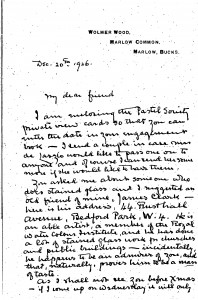 WOLMER WOOD,
MARLOW COMMON,
MARLOW, BUCKS.
Dec. 20th 1926.
My dear friend
I am enclosing the Pastel Society
private view cards so that you can
enter the date in your engagement
book – I send a couple in case Mrs
de Laszlo would like to pass one on to
anyone and of course I can send her some
more if she would like to have them.
You asked me about someone who
does stained glass and I suggested an
old friend of mine, James Clark –
here is his address, 44, Rusthall
Avenue, Bedford Park, W. 4. He is
an able artist, a member of the Royal
Water Colour Institute, and he has done
a lot of stained glass work in churches
and public buildings – incidentally,
he happens to be an admirer of you, and
that, naturally, proves him to be a man
of taste.
As I shall not see you before Xmas
– if I come up on Wednesday it will only